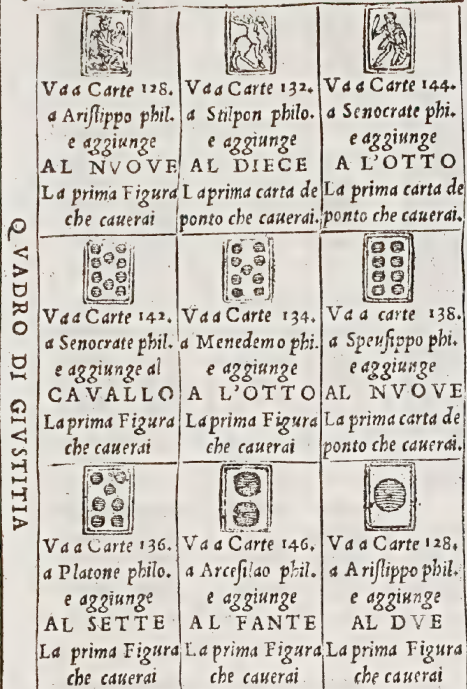 QVADRO DI GIVSTITIA
Va a Carte 128.
a Aristippo phil.
e aggiunge
AL NVOVE
La prima Figura
che cauerai
Va a Carte 132.
a Stilpon philo.
e aggiunge
AL DIECE
La prima carta de
ponto che cauerai.
Va a Carte 144.
a Senocrate phi.
e aggiunge
A L'OTTO
La prima carta de
ponto che cauerai.
Va a Carte 142.
a Senocrate phil.
e aggiunge al
CAVALLO
La prima Figura
che cauerai
Va a Carte 134.
a Menedemo phi.
e aggiunge
A L'OTTO
La prima Figura
che cauerai
Va a carte 138.
a Speusippo phi.
e aggiunge
AL NVOVE
La prima carta de
ponto che cauerai.
Va a Carte 136.
a Platone philo.
e aggiunge
AL SETTE
La prima Figura
che cauerai
Va a Carte 146.
a Arcesilao phil.
e aggiunge
AL FANTE
La prima Figura
che cauerai
Va a Carte 128.
a Aristippo phil.
e aggiunge
AL DVE
La prima Figura
che cauerai